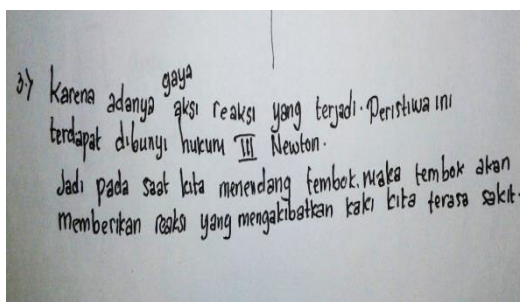 3.) Karena adanya gaya aksi reaksi yang terjadi. Peristiwa ini
terdapat dibunyi hukum III Newton.
Jadi pada saat kita menendang tembok. maka tembok akan
memberikan reaksi yang mengakibatkan kaki kita terasa sakit.